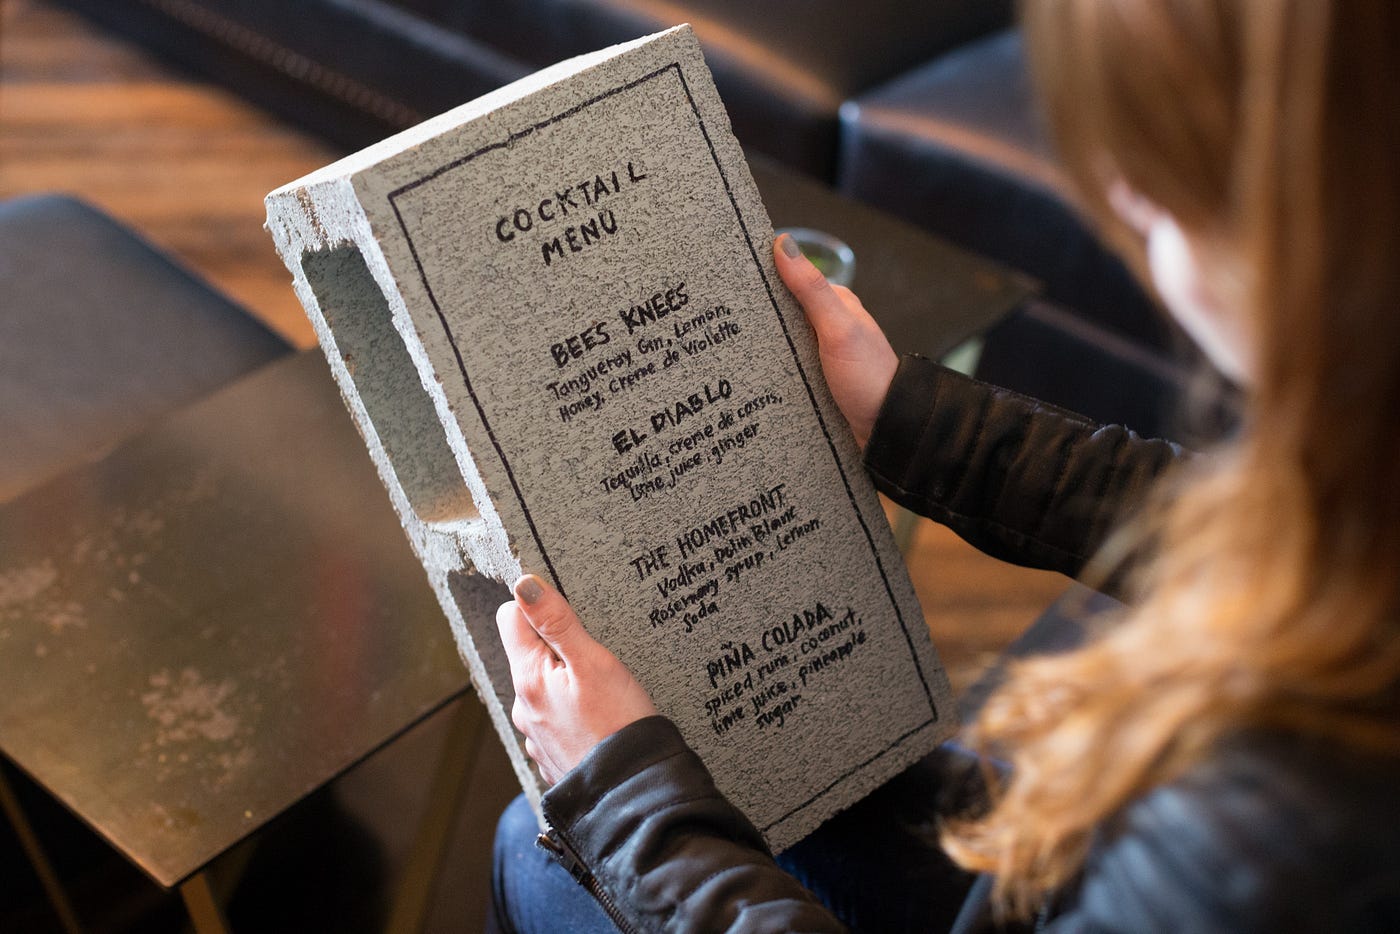 COCKTAIL
MENU
BEES KNEES
Tangueray Gin, Lemon,
Honey, Creme de Violette
EL DIABLO
Tequilla, creme de cassis,
Lime juice, ginger
THE HOMEFRONT
Vodka, Dolin Blanc
Rosemary syrup, Lemon
Soda
PIÑA COLADA
spiced rum, coconut,
lime juice, pineapple
sugar